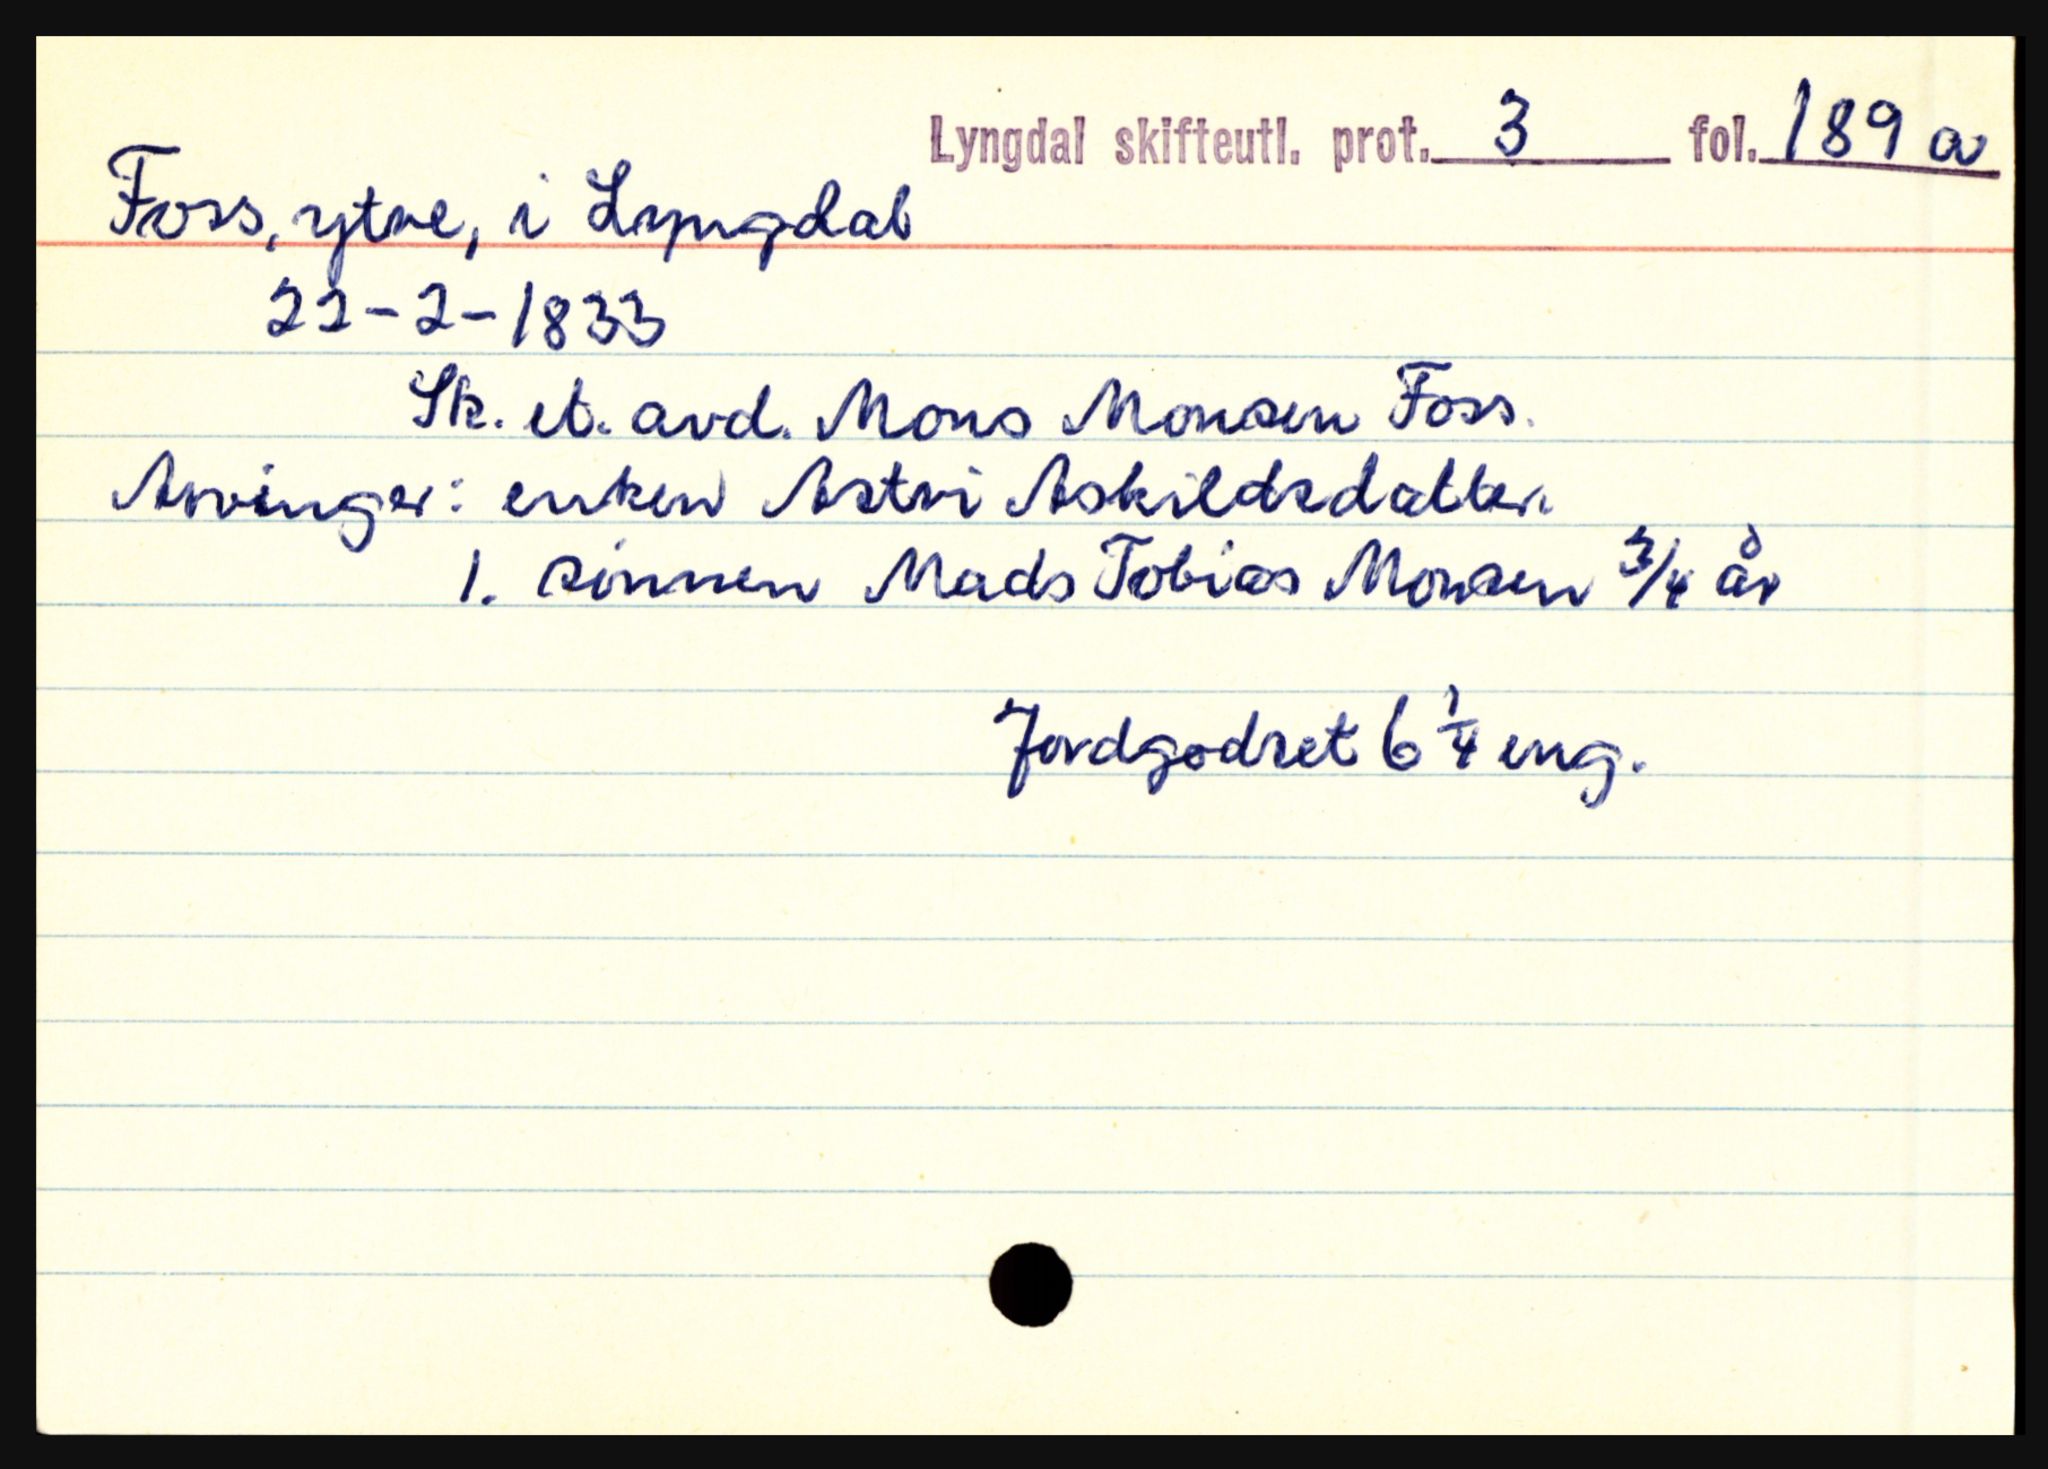 Lyngdal skifteutl. prot. 3 fol. 189 a
Foss, ytre, i Lyngdal
22-2-1833
Sk. et. avd. Mons Monsen Foss.
Arvinger: enken Astri Askildsdatter.
1. sønnen Mads Tobias Monsen 3/4 år
Jordgodset 6 1/4 eng.